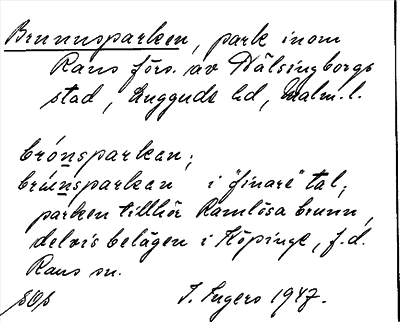 Brunnsparken, park inom
Raus förs. av Hälsingborgs
stad, Luggude hd, Malm. l.
brónsparkan;
brúnsparkan i "finare" tal;
parken tillhör Ramlösa brunn,
delvis belägen i Köpinge, f.d.
Raus sn.
I. Ingers 1947.